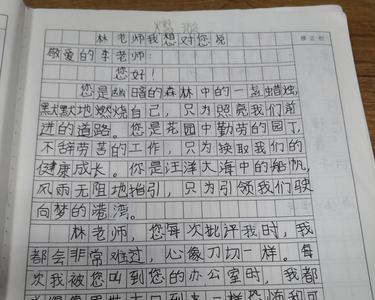 林老师我想对您说
敬爱的李老师:
您好!
您是幽暗的森林中的一盏蜡烛,
默默地燃烧自己,只为照亮我们前
进的道路。您是花园中勤劳的园丁,
不辞劳苦的工作,只为换取我们的
健康成长。你是汪洋大海中的船帆,
风雨无阻地指引,只为引领我们驶
向梦的港湾。
林老师,您每次批评我时,我
都会非常难过,心像刀切一样。每
次我被您叫到您的办公室时,我都